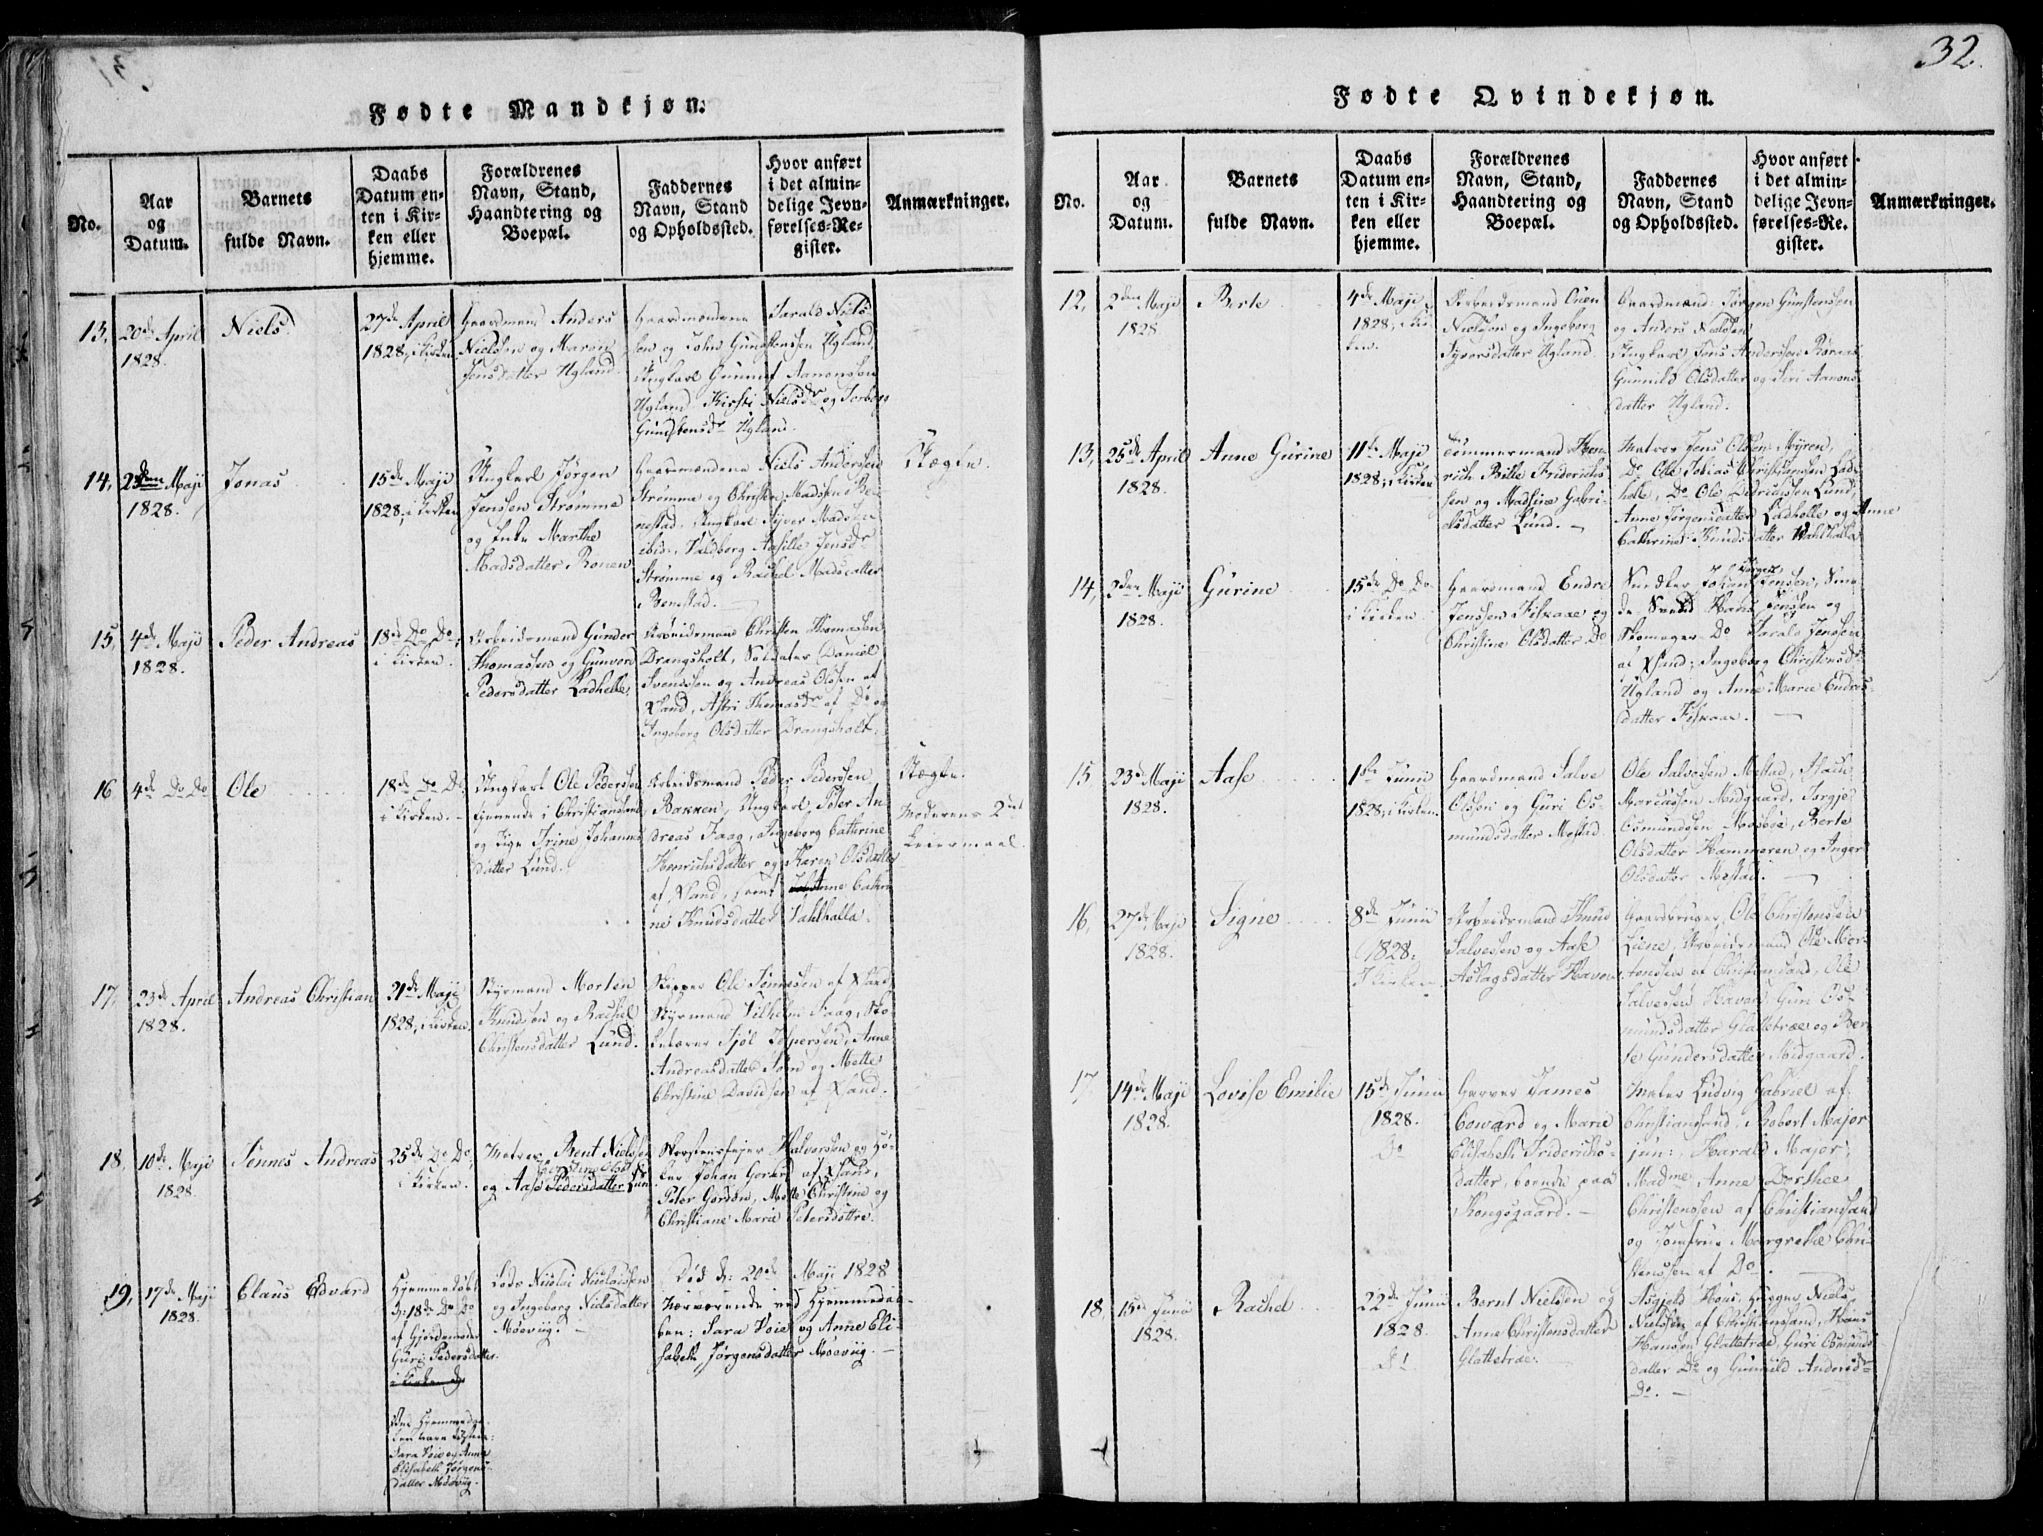 32.
Fødte Mandkjøn.
No.
Aar og Datum.
Barnets fulde Navn.
Daabs Datum enten i Kirken eller hjemme.
Forældrenes Navn, Stand, Haandtering og Boepæl.
Faddernes Navn, Stand og Opholdssted.
Hvor anført i det almindelige Jevnførelses-Register.
Anmærkninger.
13, 20de April 1828.
Niels.
27de April 1828, i Kirken
Gaardmand Anders
Nielsen og Maren
Jensdatter Ugland.
Gaardmændene Tarald Niels-
sen og John Gundstensen Ugland,
Ungkarl Gunmet Aanonsen
Ugland, Kirsti Nielsdr og Torborg
Gundstensdr Ugland.
14, 2den Maji 1828.
Jonas
15de Maji 1828, i Kirken
Ungkarl Jørgen
Jenssen Strømme
og Enke Marthe
Madsdatter Ronen
Gaardmændene Niels Anderssen
Strømme og Christen Madssen Be-
nestad, Ungkarl Syver Madssen
ibid., Valborg Aasille Jensdr
Strømme og Rachel Madsdatter
Benestad.
Uægte.
15, 4de Maji 1828.
Peder Andreas
18de Do Do, i Kirken.
Arbeidsmand Gunder
Thomassen og Gunvor
Pedersdatter Ladhelle.
Arbeidsmand Christen Thomassen
Drangsholt, Soldater Daniel
Svendsen og Andreas Olsen af
Xsand, Astri Thomasdr af Do og
Ingeborg Olsdatter Drangsholt.
16 4de Do Do
Ole
18de Do Do i Kirken.
Ungkarl Ole Pederssen
tjenende i Christiansand
og Pige Trine Johannes-
datter Lund.
Arbeidsmand Peder Pederssen
Bakken, Ungkarl Peter An-
dreas Faag, Ingeborg Cathrine
Henrichsdatter og Karen Olsdatter
af Xsand, samt Anne Cathri-
ne Knudsdatter Valhalla.
Uægte.
Moderens 2det
Leiermaal.
17, 23de April 1828.
Andreas Christian
21de Maji 1828, i Kirken.
Styrmand Morten
Knudsen og Rachel
Christensdatter Lund.
Skipper Ole Tønnessen af Xsand,
Styrmand Vilhelm Faag, Sko-
lelærer Sjøl Jespersen, Anne
Andreasdatter Søm og Mette
Christine Davidsen af Xsand.
18, 10de Maji 1828.
Tønnes Andreas
25de Do Do, i Kirken.
Matros Bent Nielssen
og Aase Pedersdatter Lund
Skorsteensfejer Halvorsen og
Johan Gerard af Xsand,
Peter Gordon, Mette Christine og
Christiane Marie Petersdøttre.
19, 17de Maji 1828.
Claus Edvard
Hjemmedøbt
d: 18de Do Do
af Gjordemoder
Guri Pedersdatter.
Ved Hjemmedaa-
ben vare tilstede:
Sara Voie og Anne
Elisabeth Jørgens-
datter Møeviig.
Lods Nicolai Nicolaissen
og Ingeborg Nielsdatter
Møeviig.
Død d: 20de Maji 1828
Nærværende ved Hjemmedaa-
ben: Sara Voie og Anne Eli-
sabeth Jørgensdatter Møeviig.
Fødte Qvindekjøn.
No.
Aar og Datum.
Barnets fulde Navn.
Daabs Datum enten i Kirken eller hjemme.
Forældrenes Navn, Stand, Haandtering og Boepæl.
Faddernes Navn, Stand og Opholdssted.
Hvor anført i det almindelige Jevnførelses-Re.gister.
Anmærkninger.
12, 2den Maji 1828
Berte
4de Maji 1828, i Kirken.
Arbeidsmand Ouen
Nielssen og Ingeborg
Syversdatter Ugland.
Gaardmænd: Jørgen Gunstensen
og Anders Nielssen
Ungkarl Jens Anderssen Rønnes
Gunnild Olsdatter og Siri Aanons-
datter Ugland.
13, 25de April 1828.
Anne Gurine
11te Maji 1828, i Kirken
Tømmermand Hen-
rich Bille Friderichs-
sen og Madsine Gabri-
elsdatter Lund.
Matros Jens Olsen Myren,
Do Ole Tobias Christiansen Lad-
helle, Do Ole Didrichssen Lund,
Anne Jørgensdatter Ladhelle og Anne
Cathrine Knudsdatter Wahlhalla
14, 2den Maji 1828.
Gurine
15de Do Do i Kirken
Gaardmand Endre
Jenssen Fiskaae og
Christine Olsdatter Do
Snedker Johan Jørgen Jenssen, Sme-
de Svend Hans Jenssen og
Skomager Do Tarald Jenssen
af Xsand; Ingeborg Christensdr
Ugland og Anne Marie Endres-
datter Fiskaae.
15 23de Maji 1828.
Aase
1ste Junii 1828, i Kirken
Gaardmand Salve
Olssøn og Guri Os-
mundsdatter Mestad
Ole Salvessen Mestad, Isach
Marcussen Midgaard, Torgje
Osmundsen Mosbøe, Berte
Olsdatter Hammeren og Inger
Olsdatter Mestad.
16, 27de Maji 1828.
Signe
8de Junii 1828. I Kirken
Arbeidsmand Knud
Salvessen og Aase
Aslagsdatter Haven
Gaardbruger Ole Christenssen
Liene, Arbeidsmand Ole Mor-
tenssen af Christiansand, Ole
Salvesen Haven, Gun Os-
mundsdatter Glattetræe og Ber-
te Gundersdatter Midgaard.
17 14de Maji 1828.
Lovise Emilie
15de Junii 1828. Do
Garver James
Coward og Marie
Elisabeth Friderichs-
datter, boende paa
Kongsgaard.
Maler Ludvig Gabriel af
Christiansand, Robert Major
jun:, Harald Major,
Madme Anne Dorthee
Christenssen af Christiansand
og Jomfrue Margrethe Chri-
stenssen af Do.
18 15de Junii 1828.
Rachel
22de Junii 1828.
Bernt Nielssen og
Anne Christensdatter
Glattetræe.
Asgjeld Hous, Niels
Nielssen af Christiansand, Hans
Hanssen Glattetræe, Guri Osmunds-
datter Do og Gunnild Andersdr
Do.